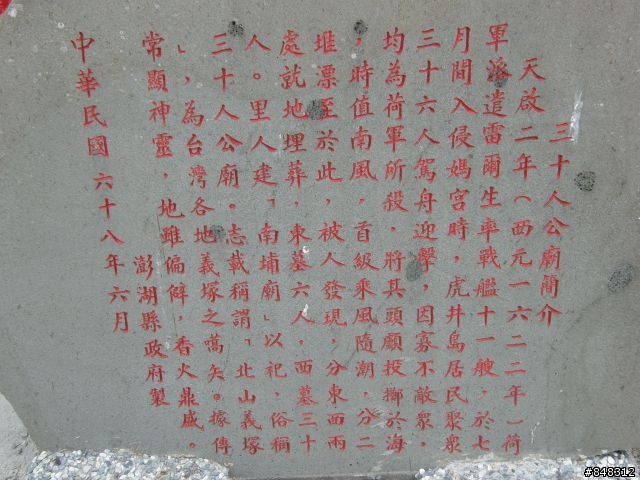 三十人公廟簡介
天啟二年（西元一六二二年）荷
軍派遣雷爾生率戰艦十一艘，於七
月間入侵媽宮時，虎井島居民聚眾
三十六人駕舟迎擊，因寡不敵眾，
均為荷軍所殺，將其頭顱投擲於海
，時值南風，首級乘風隨潮，分二
堆漂至於此，被人發現，分東西兩
處就地埋葬，東墓六人，西墓三十
人。里人建「南埔廟」以祀，俗稱
三十人公廟。志載稱謂「北山義塚
」，為台灣各地義塚之嚆矢。據傳
常顯神靈，地雖偏僻，香火鼎盛。
澎湖縣政府製
中華民國六十八年六月
#848312